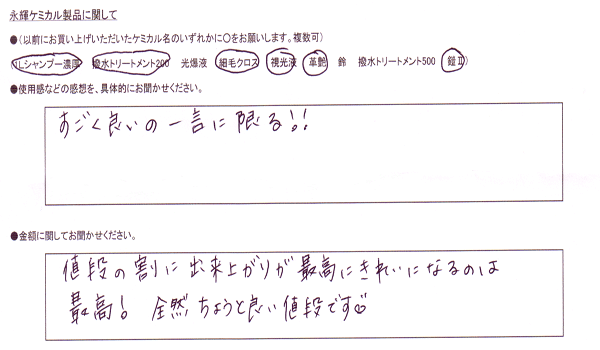 永輝ケミカル製品に関して
●(以前にお買い上げいただいたケミカル名のいずれかに〇をお願いします。複数可)
1Lシャンプー濃厚 撥水トリートメント200 光爆液 細毛クロス 視光液 革艶 鈴 撥水トリートメント500 鎧Ⅱ)
●使用感などの感想を、具体的にお聞かせください。
すごく良いの一言に限る!!
●金額に関してお聞かせください。
値段の割に出来上がりが最高にきれいになるのは
最高! 全然ちょうど良い値段です☺